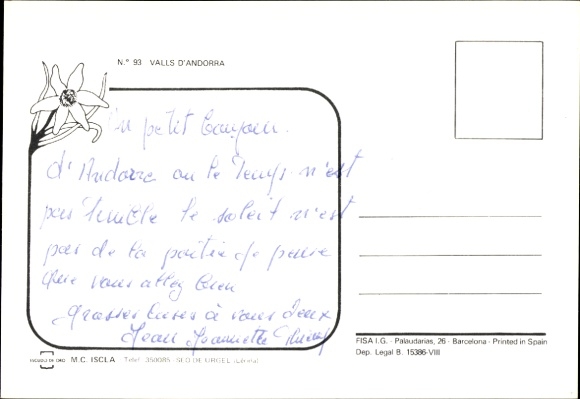 N.° 93 VALLS D'ANDORRA
un petit bonjour.
d'Andorre ou le Temps n'est
pas le soleil n'est
pas de la partie je pense
que vous allez bien
Grosses bises à vous deux
Jean Jeannette Thierry
ESCUDO DE ORO M.C. ISCLA Telef. 350085 SEO DE URGEL (Lérida)
FISA I.G. - Palaudarias, 26 - Barcelona - Printed in Spain
Dep. Legal B. 15386-VIII